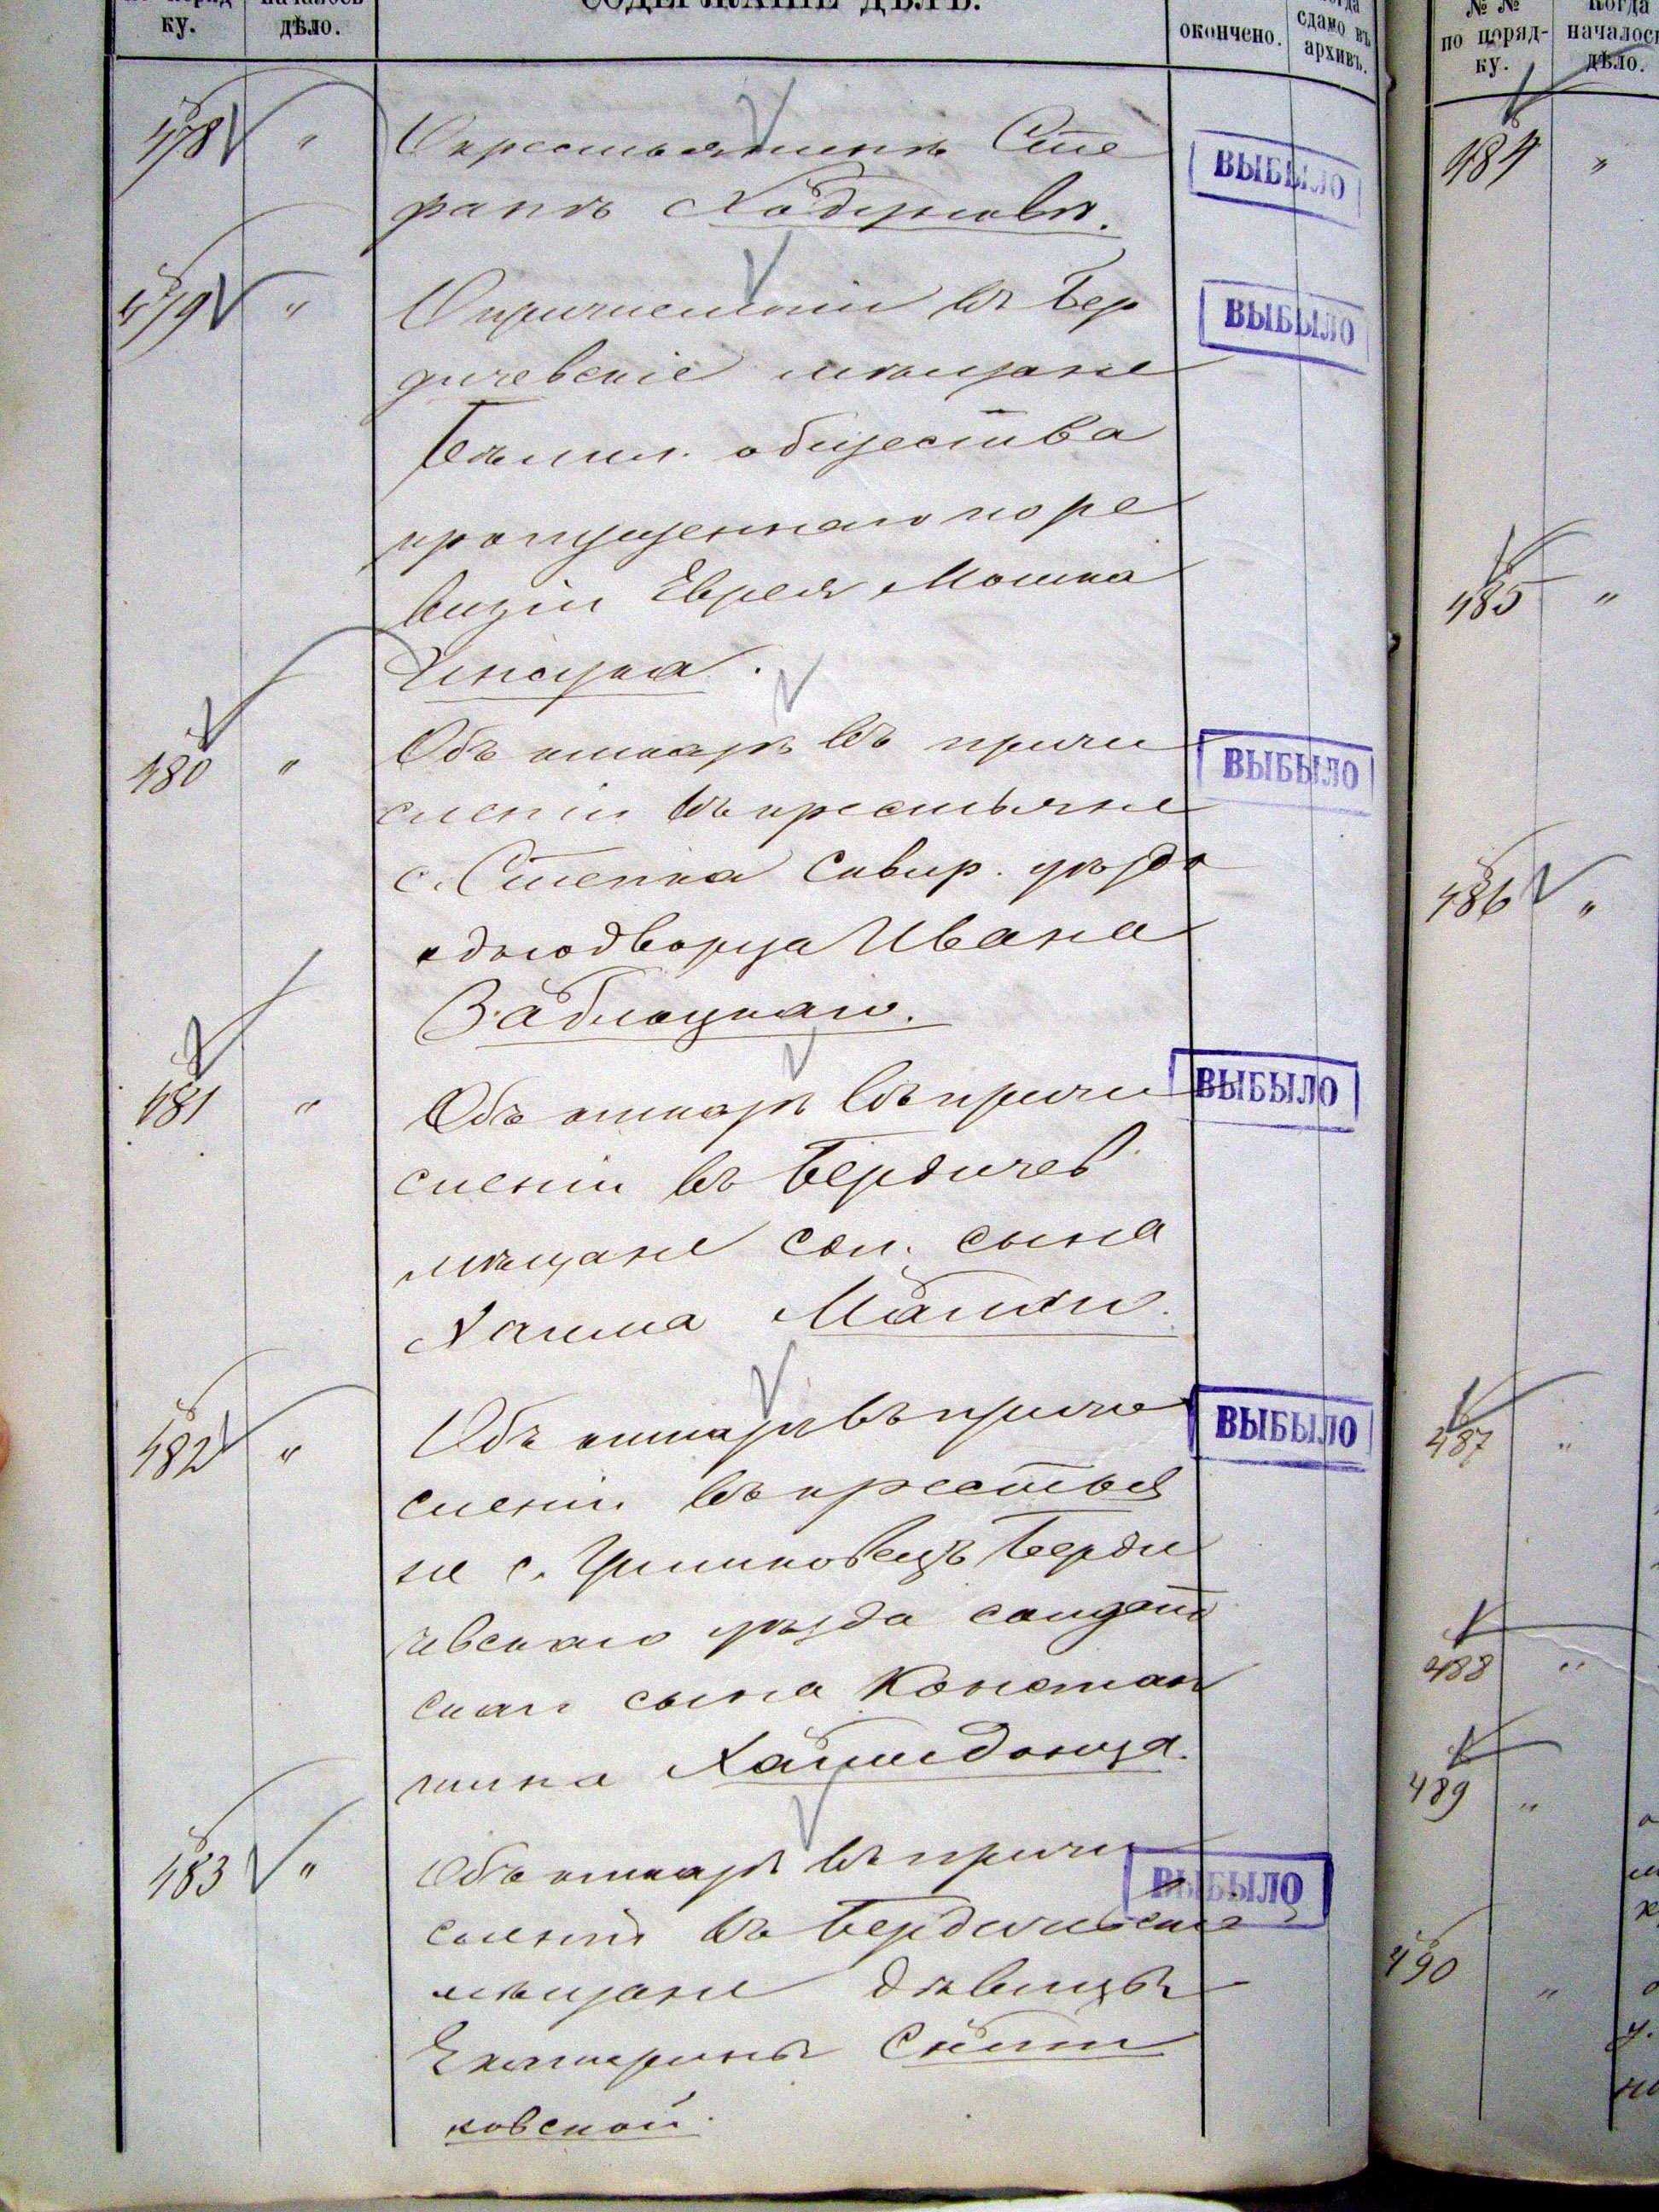 ку.
дѣло.
СОДЕРЖАНІЕ ДѢЛЪ.
окончено.
сдано въ
архивъ.
478 "
О крестьянинѣ Сте
фанѣ
ВЫБЫЛО
479 "
О причисленіи въ Бер
дичевскіе мѣщане
общества
пропущеннаго по ре
визіи Еврея Мошка
ВЫБЫЛО
480 "
Объ отказѣ въ причи
сленіи въ крестьяне
с. Степка Сквир. уѣзда
однодворца Ивана
Заблоцкаго.
ВЫБЫЛО
481 "
Объ отказѣ въ причи
сленіи въ Бердичев.
мѣщане сол. сына
ВЫБЫЛО
482 "
Объ отказѣ въ причи
сленіи въ крестья
не с. Берди
чевскаго уѣзда солдат
скаго сына Констан
тина
ВЫБЫЛО
483 "
Объ отказѣ въ причи
сленіи въ Бердичевскіе
мѣщане дѣвицы
Екатерины
ковской.
ВЫБЫЛО
№ №
по поряд-
ку.
Когда
началось
дѣло.
484 "
485 "
486 "
487 "
488 "
489 "
490 "